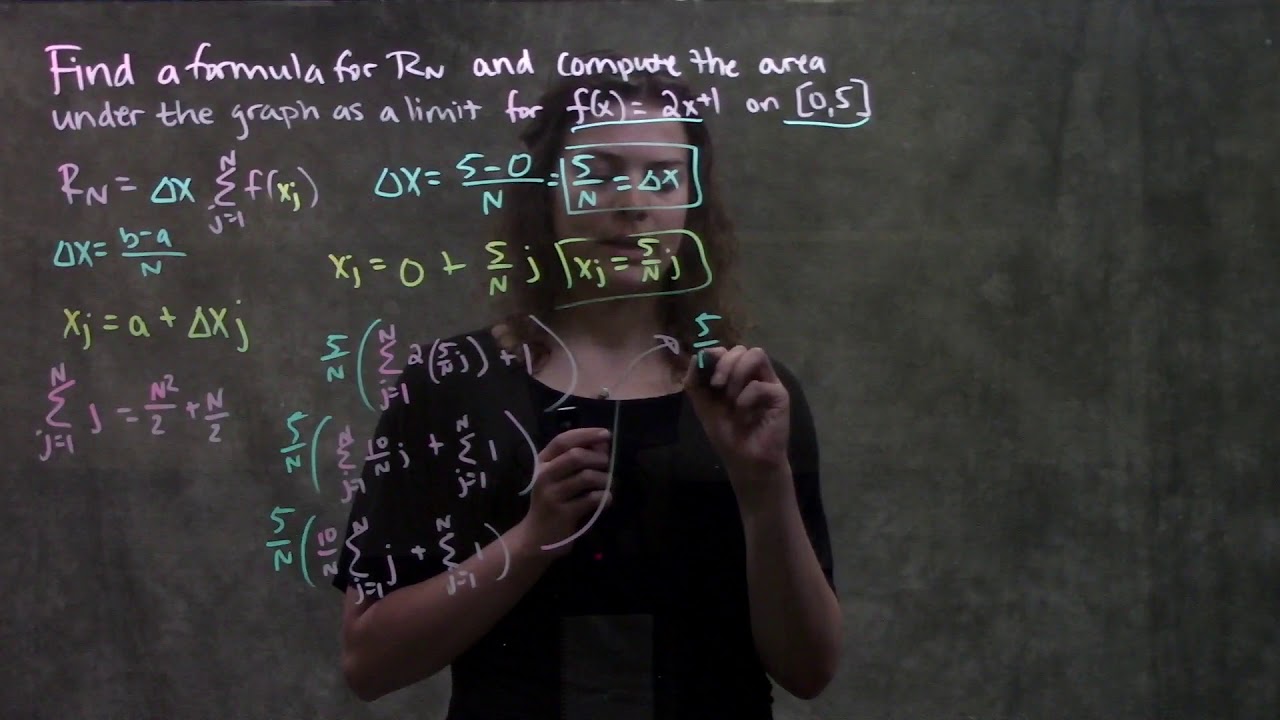 Find a formula for R_N and compute the area
under the graph as a limit for f(x) = 2x+1 on [0,5]
R_N = Δx ∑_{j=1}^{N} f(x_j)
Δx = (5-0)/N = 5/N = Δx
Δx = (b-a)/N
x_j = 0 + 5/N j
x_j = 5/N j
x_j = a + Δx j
5/N ( ∑_{j=1}^{N} 2(5/N j) + 1 )
5/
∑_{j=1}^{N} j = N²/2 + N/2
5/N ( ∑_{j=1}^{N} 10/N j + ∑_{j=1}^{N} 1 )
5/N ( 10/N ∑_{j=1}^{N} j + ∑_{j=1}^{N} 1 )